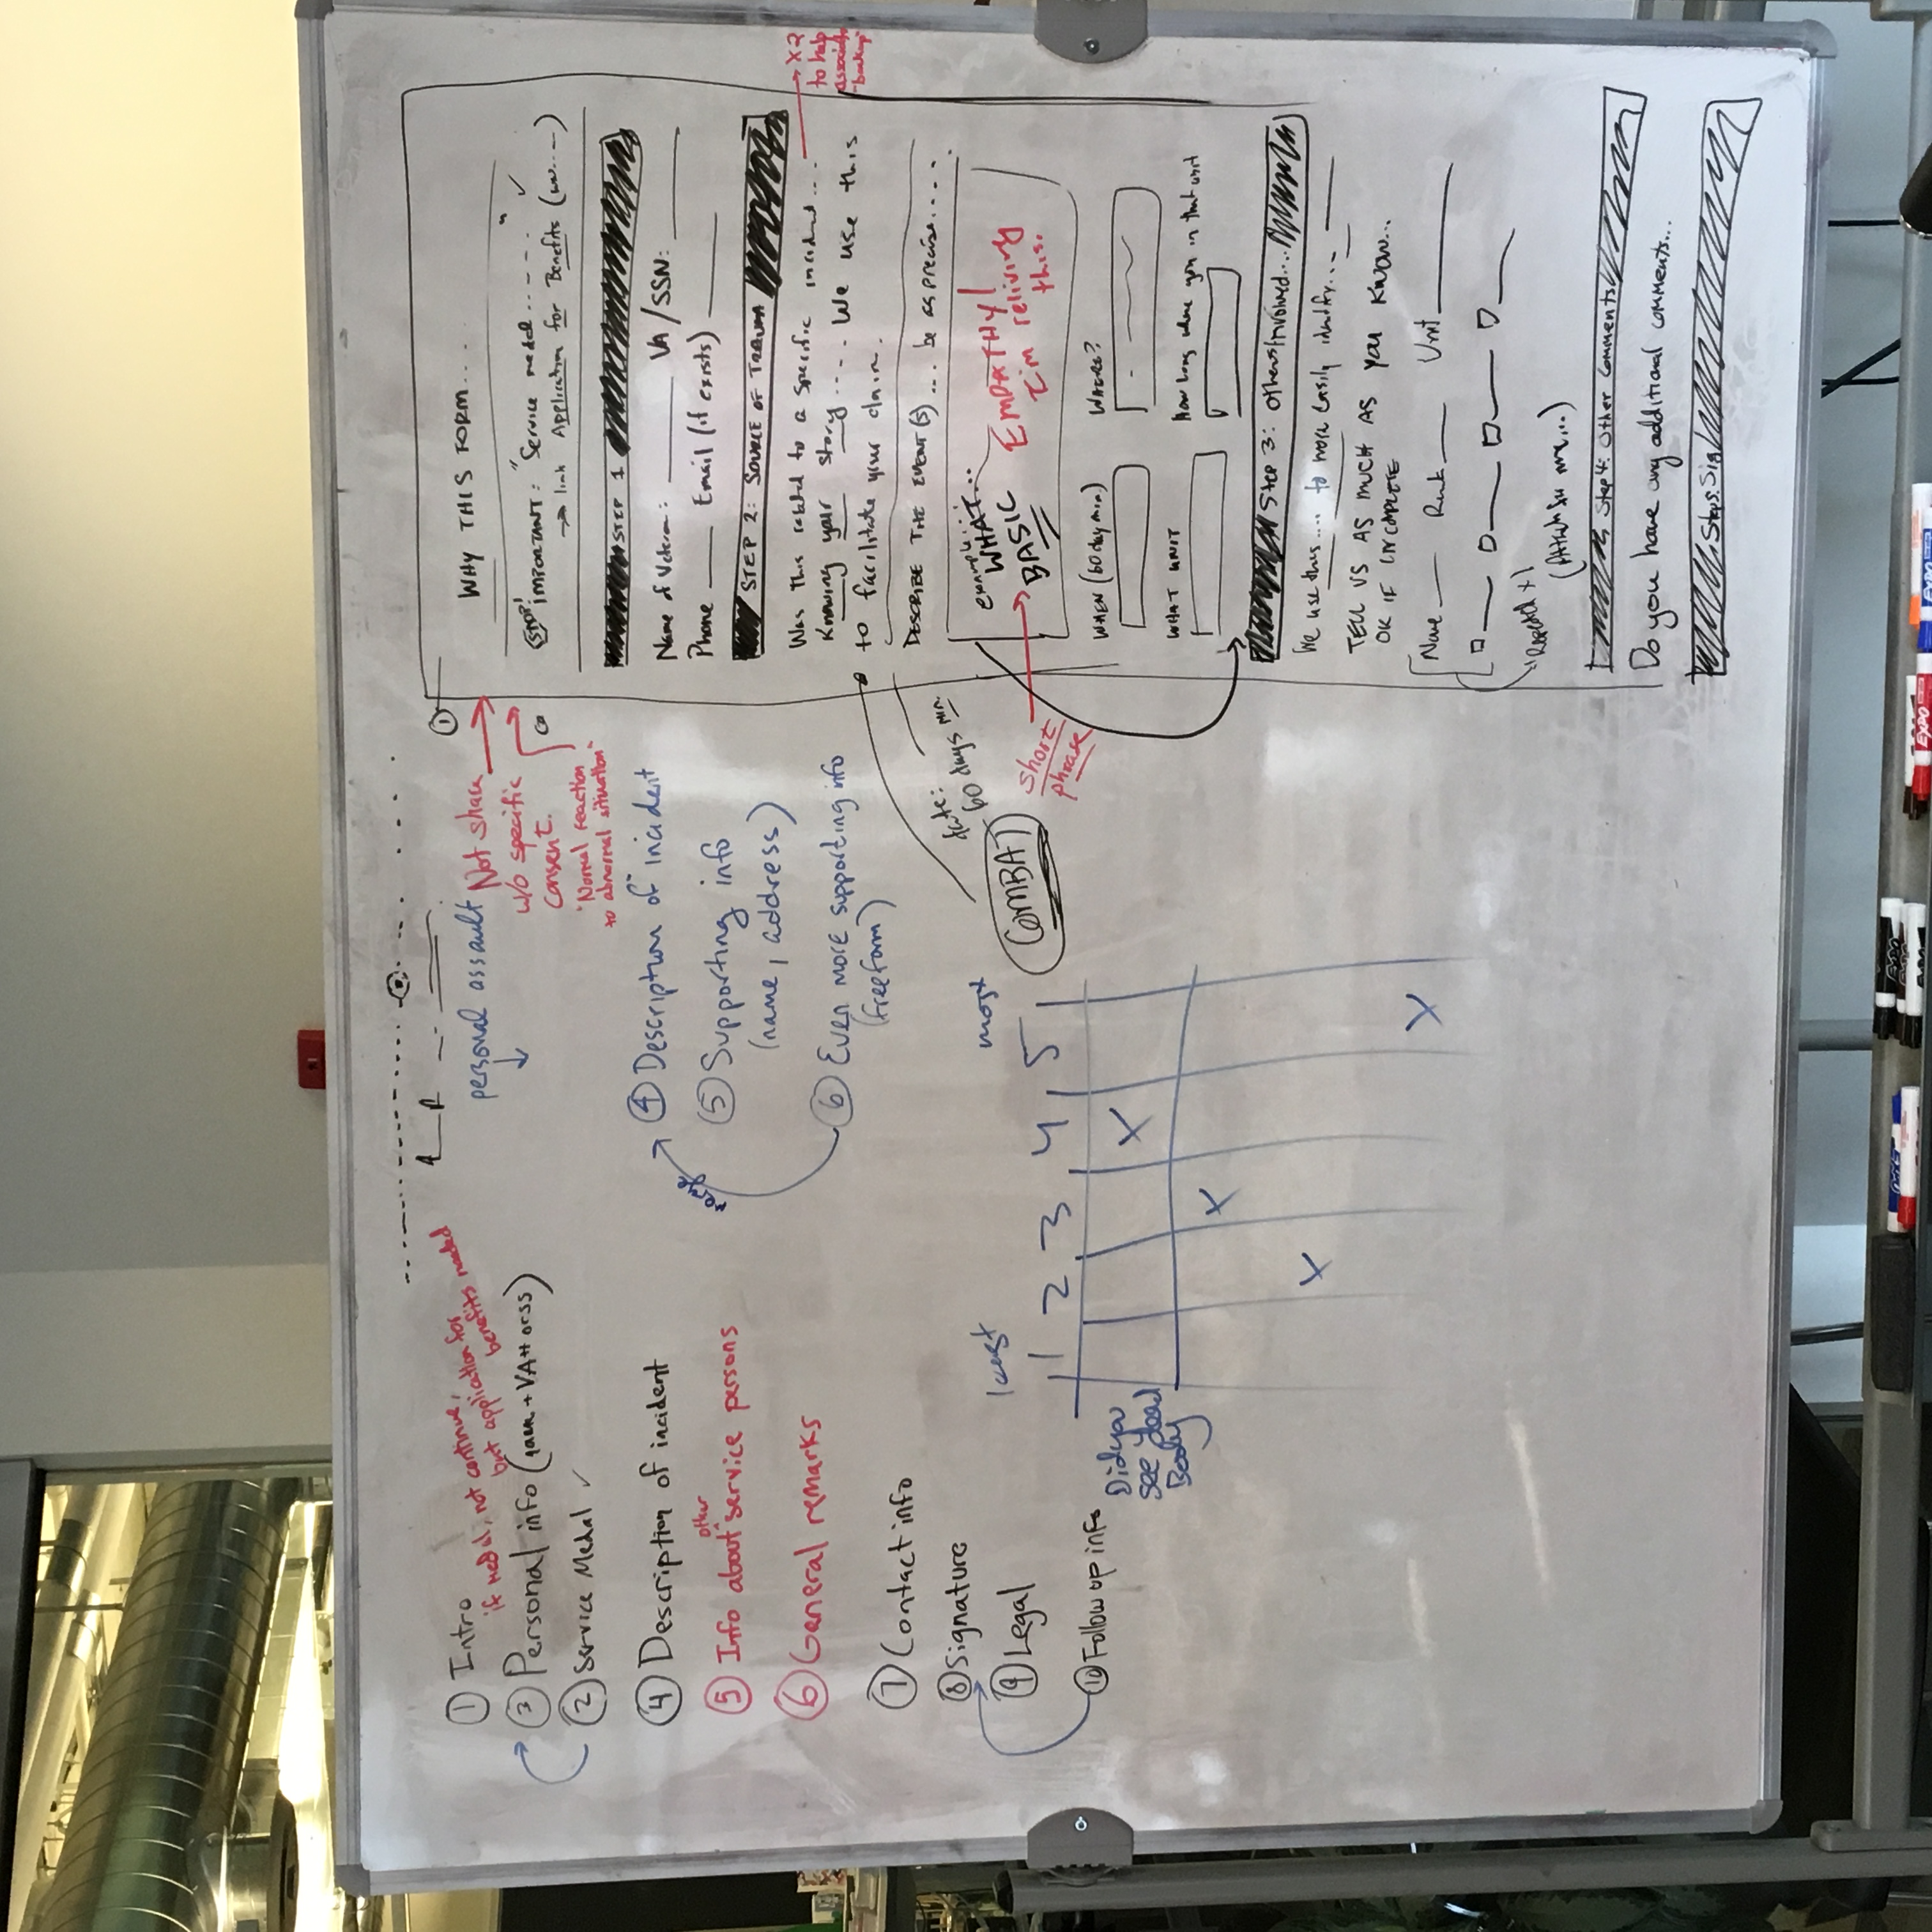 ① Intro
if medal, not continue,
but application for
benefits needed
③ Personal info (name + VA# or SS)
② Service Medal ✓
④ Description of incident
⑤ Info about other service persons
⑥ General remarks
⑦ Contact info
⑧ Signature
⑨ Legal
⑩ Follow up info
personal assault
Not share
w/o specific
consent.
"Normal reaction
to abnormal situation"
merge
④ Description of incident
⑤ Supporting info
(name, address)
⑥ Even more supporting info
(freeform)
least
most
1 2 3 4 5
Did you
see dead
Body
X
X
X
X
COMBAT
date:
60 days min.
short
phrase
①
WHY THIS FORM....
STOP! IMPORTANT: "Service medal ....." ✓
→ link Application for Benefits (
STEP 1
Name of Veteran: VA/SSN:
Phone Email (if exists)
STEP 2: SOURCE OF TRAUMA
Was this related to a specific incident...
Knowing your story .... We use this
to facilitate your claim.
x2
to help
associate
"backup"
DESCRIBE THE EVENT(S) ... be as precise....
example...
WHAT...
BASIC
EMPATHY!
I'm reliving
this.
WHEN (60 day min) WHERE?
WHAT UNIT How long where you in that unit
Step 3: Others involved....
We use this.... to more easily identify...
TELL US AS MUCH AS YOU KNOW...
OK IF INCOMPLETE
Name Rank Unit
Repeated x1
(Attach for more...)
Step 4: Other Comments
Do you have any additional comments...
Step 5: Sig
EXPO
EXPO